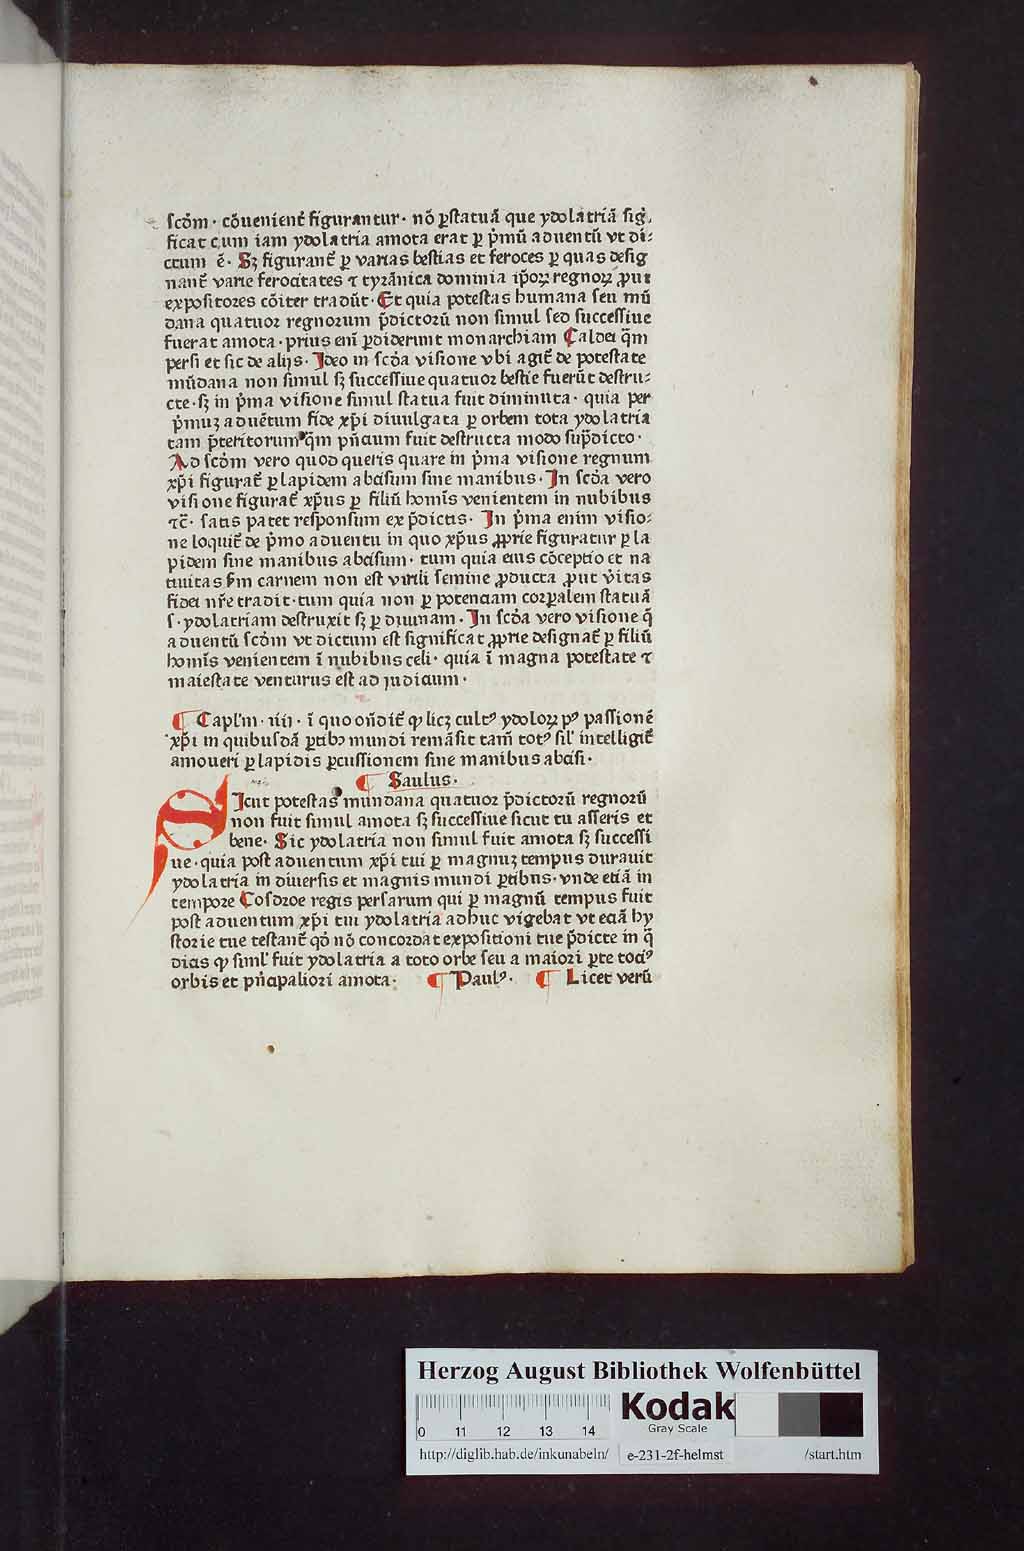 scḋm · cōuenienť figurantur · nō ꝑstatuā que ydolatriā sig͛,
ficat cum iam ydolatria amota erat ꝑ pͥmū aduentū vt di⸗
ctum ē · Sꝫ figuranť ꝑ varias bestias et feroces ꝑ quas desig
nanť varie ferocitates ⁊ tyrānica dominia ip̄oꝝ regnoꝝ ꝓut
expositores cōiter tradūt · Et quia potestas humana seu mū
dana quatuor regnorum p̄dictorū non simul sed successiue
fuerat amota · prius enī ꝑdiderunt monarchiam Caldei q̄m
persi et sic de alijs · Ideo in scḋa visione vbi agiť de potestate
mūdana non simul sꝫ successiue quatuor bestie fuerūt destru⸗
cte · sꝫ in pͥma visione simul statua fuit diminuta · quia per
pͥmuꝫ aduētum fide xp̄i diuulgata ꝑ orbem tota ydolatria
tam p̄teritorum q̄m pn̄cium fuit destructa modo sup̄dicto ·
Ad scḋm vero quod queris quare in pͥma visione regnum
xp̄i figurať ꝑ lapidem abcisum sine manibus · In scḋa vero
visione figurať xp̄us ꝑ filiū homīs venientem in nubibus
⁊c̄ · satis patet responsum ex p̄dictis · In pͥma enim visio⸗
ne loquiť de pͥmo aduentu in quo xp̄us ꝓprie figuratur ꝑ la
pidem sine manibus abcisum · tum quia eius cōceptio et na
tiuitas ẜm carnem non est virili semine ꝓducta ꝓut vͥitas
fidei nr̄e tradit · tum quia non ꝑ potenciam corꝑalem statuā
s · ydolatriam destruxit sꝫ ꝑ diuinam · In scḋa vero visione q̄
aduentū scḋm vt dictum est significat ꝓprie designať ꝑ filiū
homīs venientem ī nubibus celi · quia ī magna potestate ⁊
maiestate venturus est ad iudicium ·
¶ Capl'm · iiij · ī quo on̄diť ꝙ licꝫ cultꝰ ydoloꝝ pꝰ passionē
xp̄i in quibusdā ꝑtibꝫ mundi remāsit tam̄ totꝰ sil' intelligiť
amoueri ꝑ lapidis ꝑcussionem sine manibus abcisi ·
¶ Saulus ·
SIcut potestas mundana quatuor p̄dictorū regnorū
non fuit simul amota sꝫ successiue sicut tu asseris et
bene · Sic ydolatria non simul fuit amota sꝫ successi
ue · quia post aduentum xp̄i tui ꝑ magnuꝫ tempus durauit
ydolatria in diuersis et magnis mundi ꝑtibus · vnde etiā in
tempore Cosdroe regis persarum qui ꝑ magnū tempus fuit
post aduentum xp̄i tui ydolatria adhuc vigebat vt eciā hy
storie tue testanť qḋ nō concordat expositioni tue p̄dicte in q̄
dicis ꝙ siml' fuit ydolatria a toto orbe seu a maiori ꝑte tociꝰ
orbis et pn̄cipaliori amota · ¶ Paulꝰ · ¶ Licet verū
Herzog August Bibliothek Wolfenbüttel
0 11 12 13 14
Kodak
Gray Scale
http://diglib.hab.de/inkunabeln/ e-231-2f-helmst /start.htm